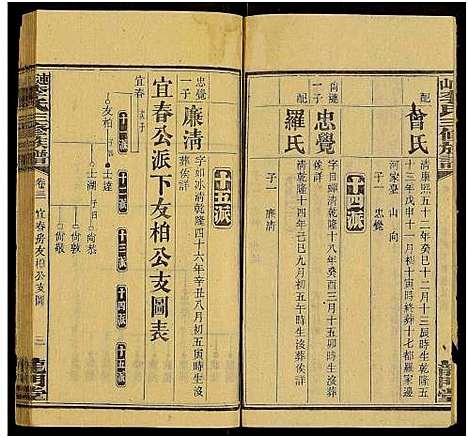 配
曾氏
清康熙五十二年癸巳十二月十三辰時生乾隆五
十三年戊申十一月初十寅時終葬十七都羅家灣
河家臺 山 向
十四派
尙璉
一子
忠覺
字目輝清乾隆十八年癸酉三月十五卯時生歿葬
俟詳
配
羅氏
清乾隆十四年己巳九月初五午時生沒葬俟詳
子一 廉清
十五派
忠覺
一子
廉清
字如冰清乾隆四十六年辛丑八月初五寅時生沒
葬俟詳
宜春公派下友柏公支圖表
十一派
十二派
十三派
十四派
十五派
宜春
次子
友柏
士達
士湖
尙恭
尙敦
尙敬
李氏三修族譜
卷三
宜春房友柏公支圖
三
龍門堂